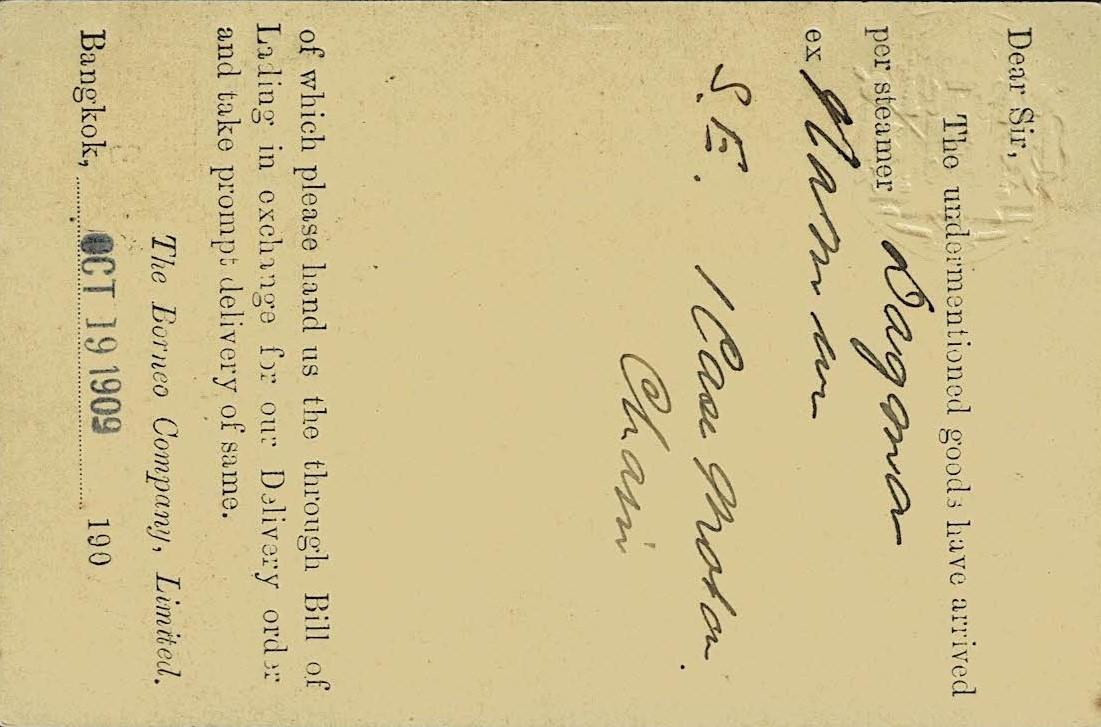 Dear Sir,
The undermentioned goods have arrived
per steamer Dagmar
ex
S. E. 1 Case Motor
Chassi
of which please hand us the through Bill of
Lading in exchange for our Delivery order
and take prompt delivery of same.
The Borneo Company, Limited.
Bangkok, OCT 19 1909 190